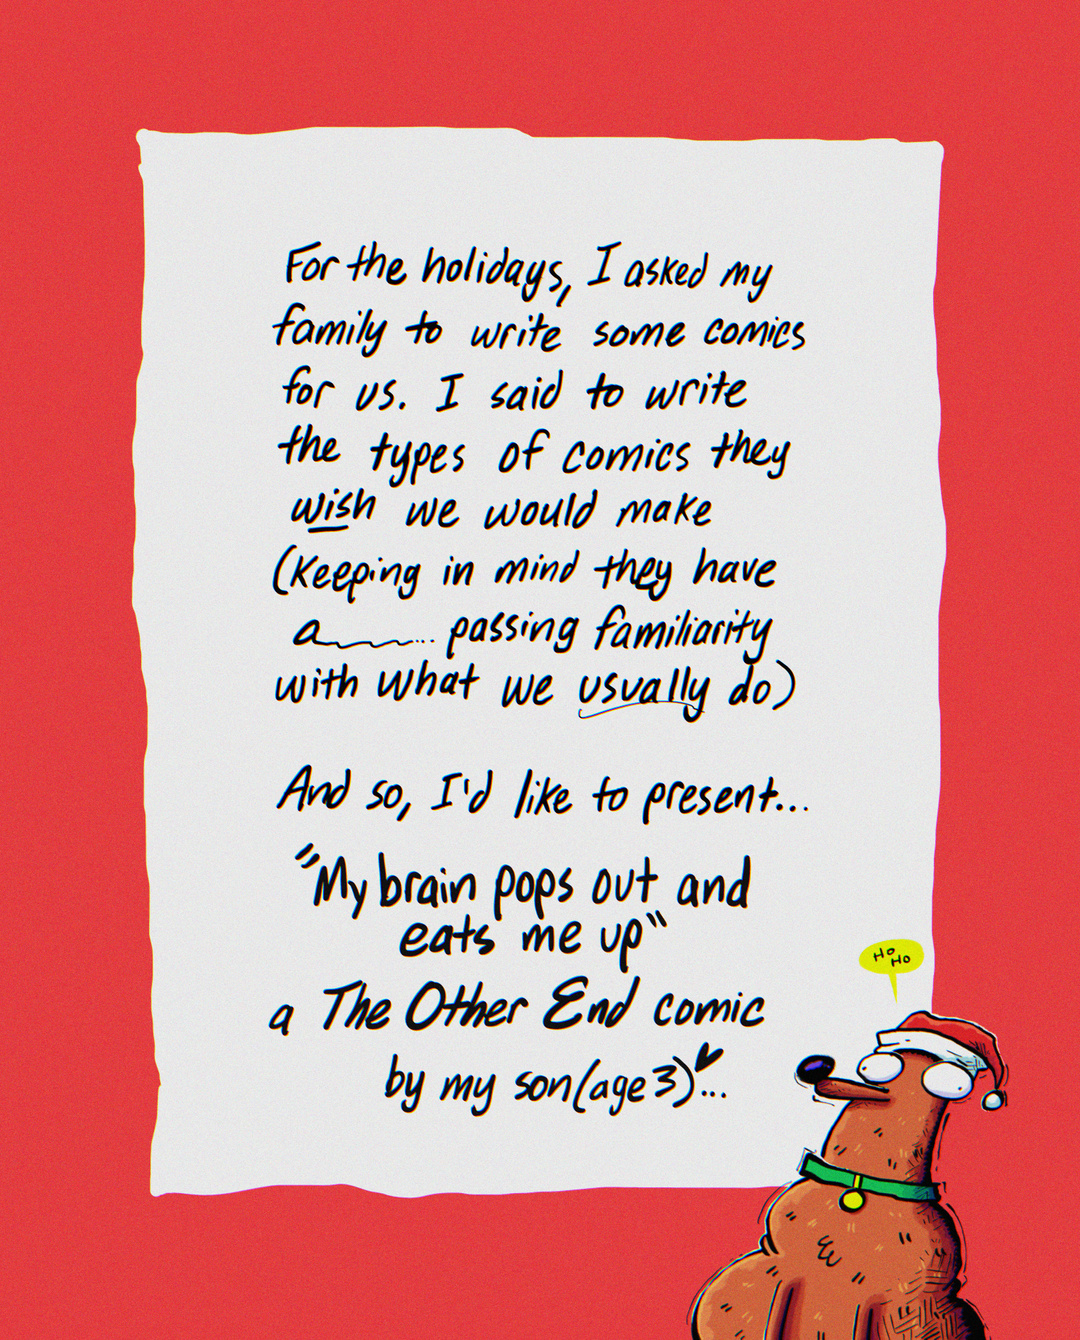 For the holidays, I asked my
family to write some comics
for us. I said to write
the types of comics they
wish we would make
(Keeping in mind they have
a... passing familiarity
with what we usually do)
And so, I'd like to present...
"My brain pops out and
eats me up"
a The Other End comic
by my son (age 3)...
Ho
Ho